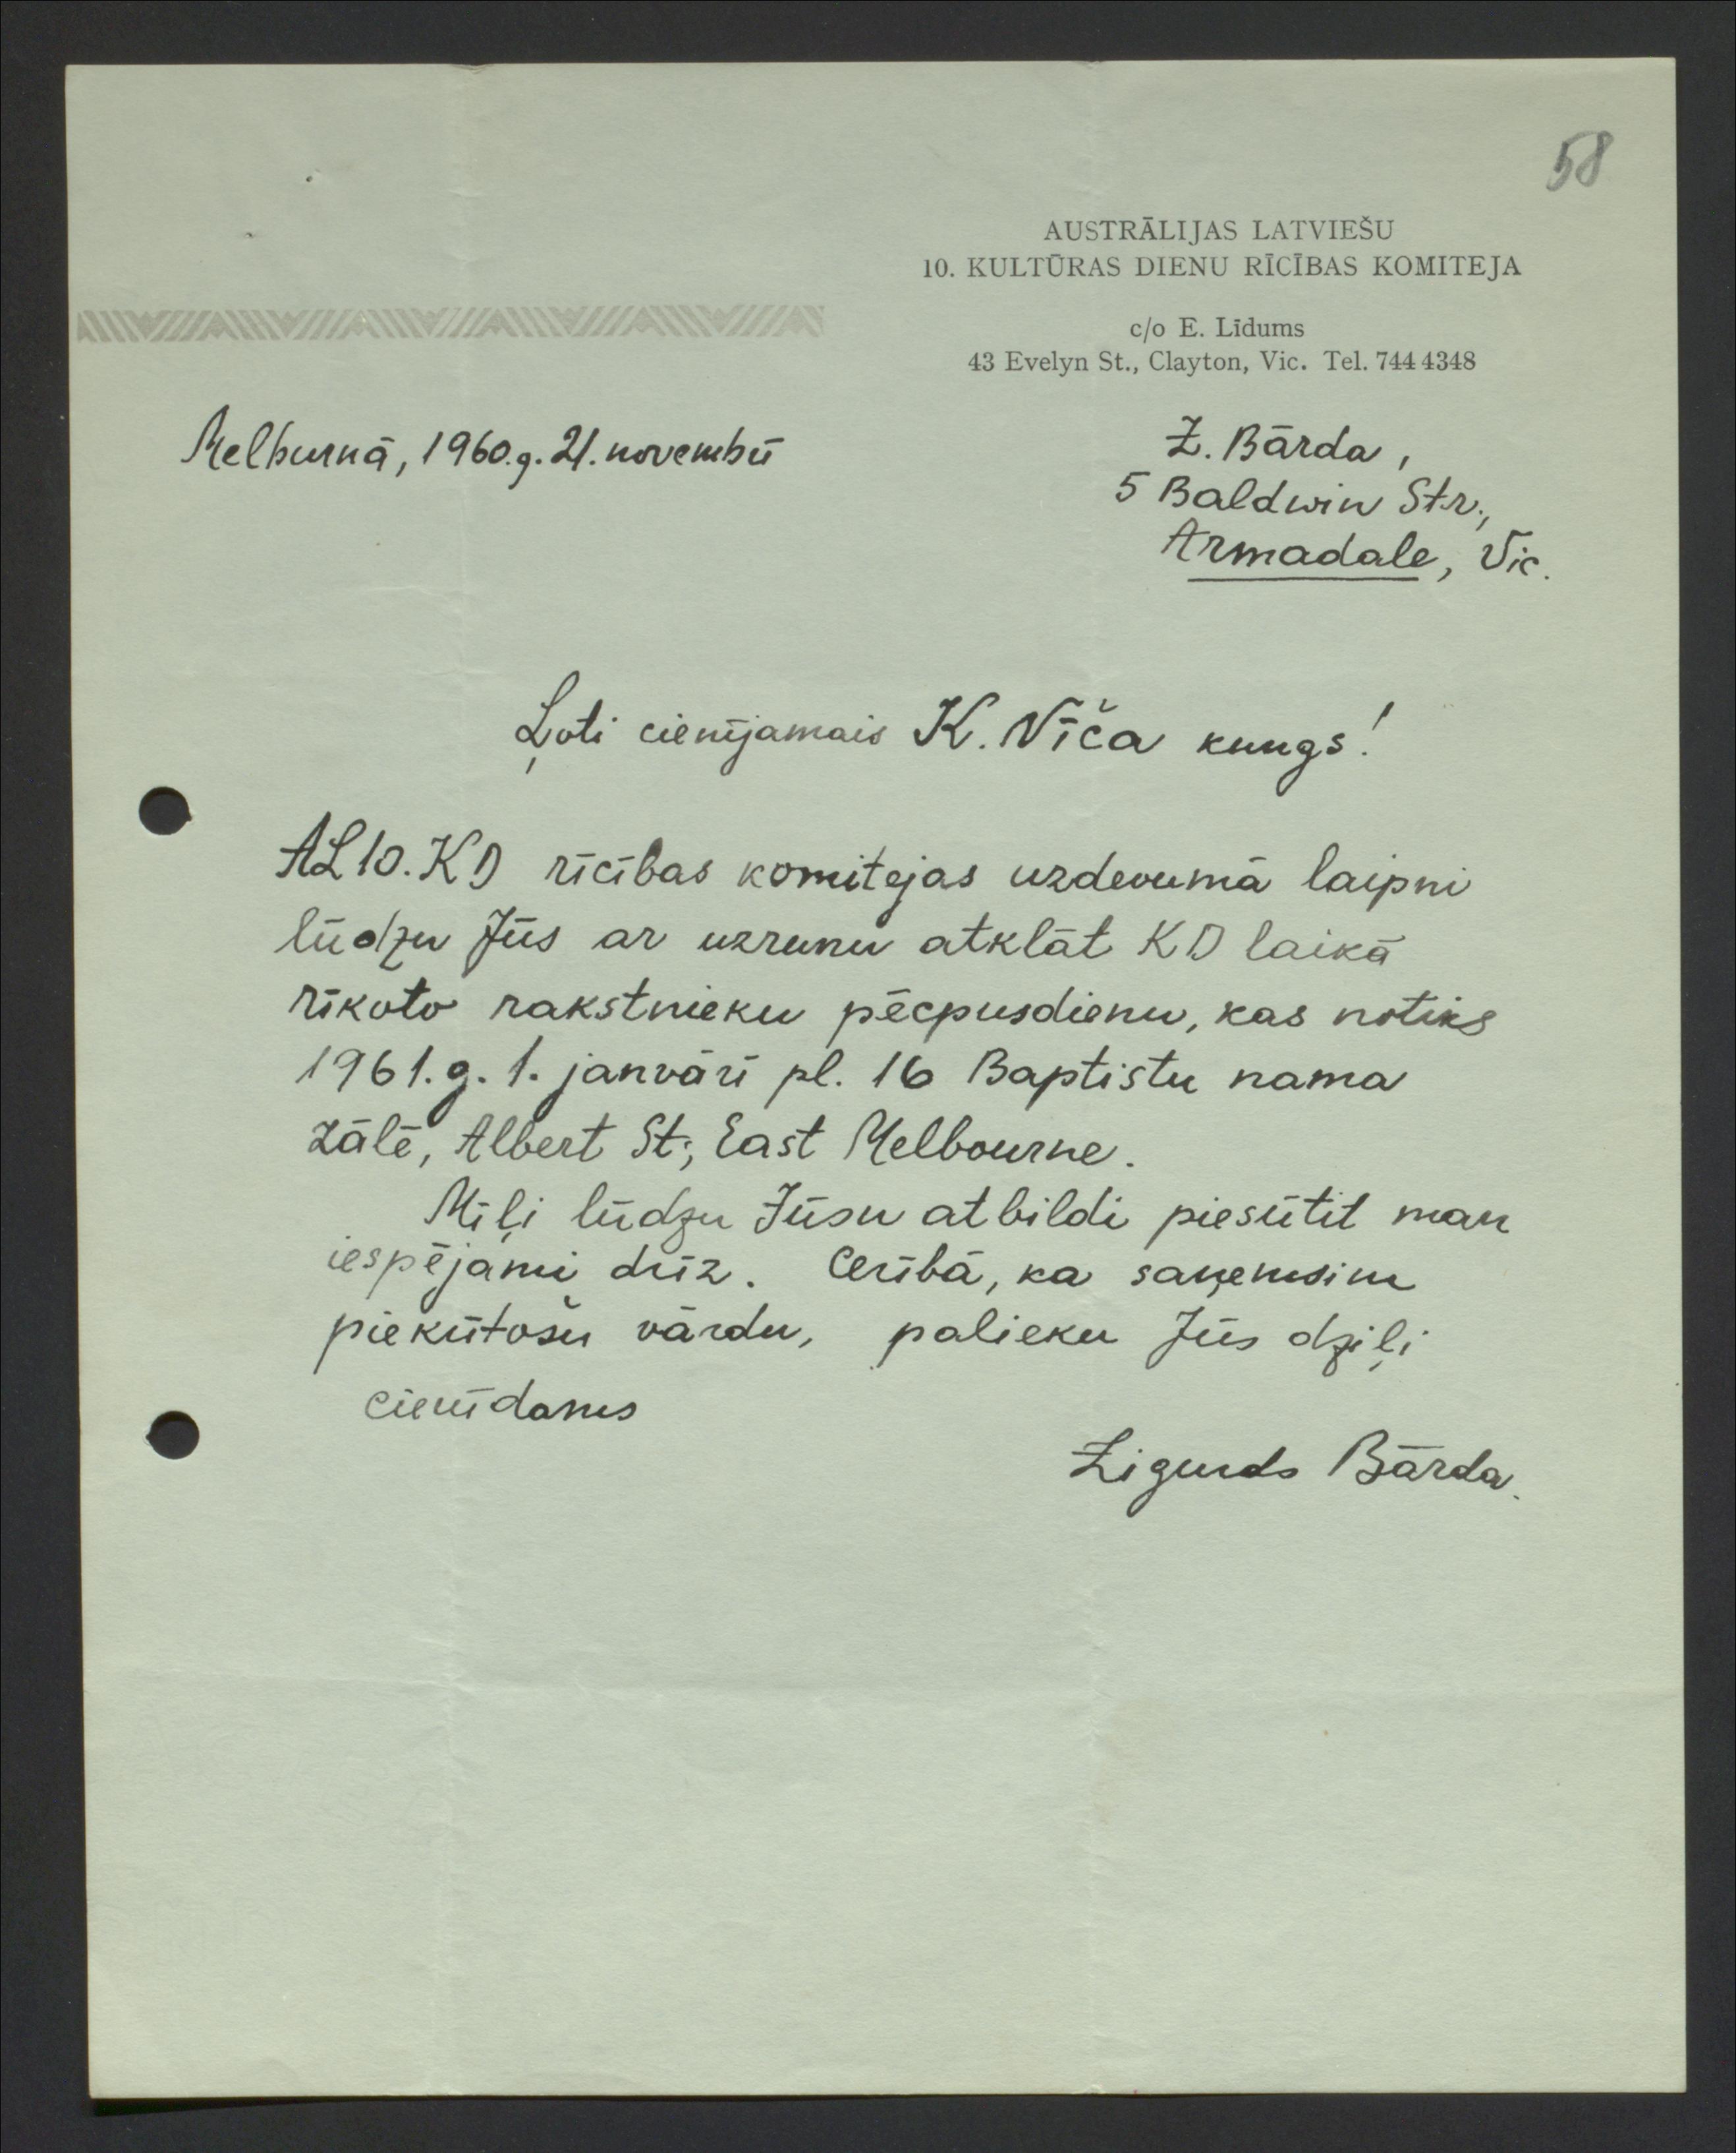 58
AUSTRĀLIJAS LATVIEŠU
10. KULTŪRAS DIENU RĪCĪBAS KOMITEJA
c/o E. Līdums
43 Evelyn St., Clayton, Vic. Tel. 744 4348
Melburnā, 1960.g. 21. novembrī
Z. Bārda,
5 Baldwin Str.,
Armadale, Vic.
Ļoti cienījamais K. Nīča kungs!
AL 10. KD rīcības komitejas uzdevumā laipni
lūdzu Jūs ar uzrunu atklāt KD laikā
rīkoto rakstnieku pēcpusdienu, kas notiks
1961. g. 1. janvārī pl. 16 Baptistu nama
zālē, Albert St., East Melbourne.
Mīļi lūdzu Jūsu atbildi piesūtīt man
iespējami drīz. Cerībā, ka saņemsim
piekrītošu vārdu, palieku Jūs dziļi
cienīdams
Zigurds Bārda.